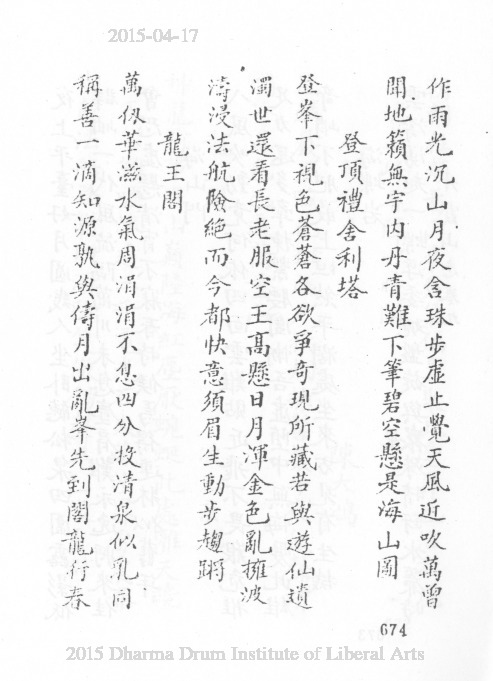 2015-04-17
作雨光沉山月夜含珠步虛止覺天風近吹萬曾
聞地籟無宇內丹青難下筆碧空懸是海山圖
登頂禮舍利塔
登峯下視色蒼蒼各欲爭奇現所藏若與遊仙遺
濁世還看長老服空王高懸日月渾金色亂擁波
濤浸法航險絕而今都快意須眉生動步趨蹡
龍王閣
萬仭華滋水氣周涓涓不息四分投清泉似乳同
稱善一滴知源孰與儔月出亂峯先到閣龍行春
674
2015 Dharma Drum Institute of Liberal Arts